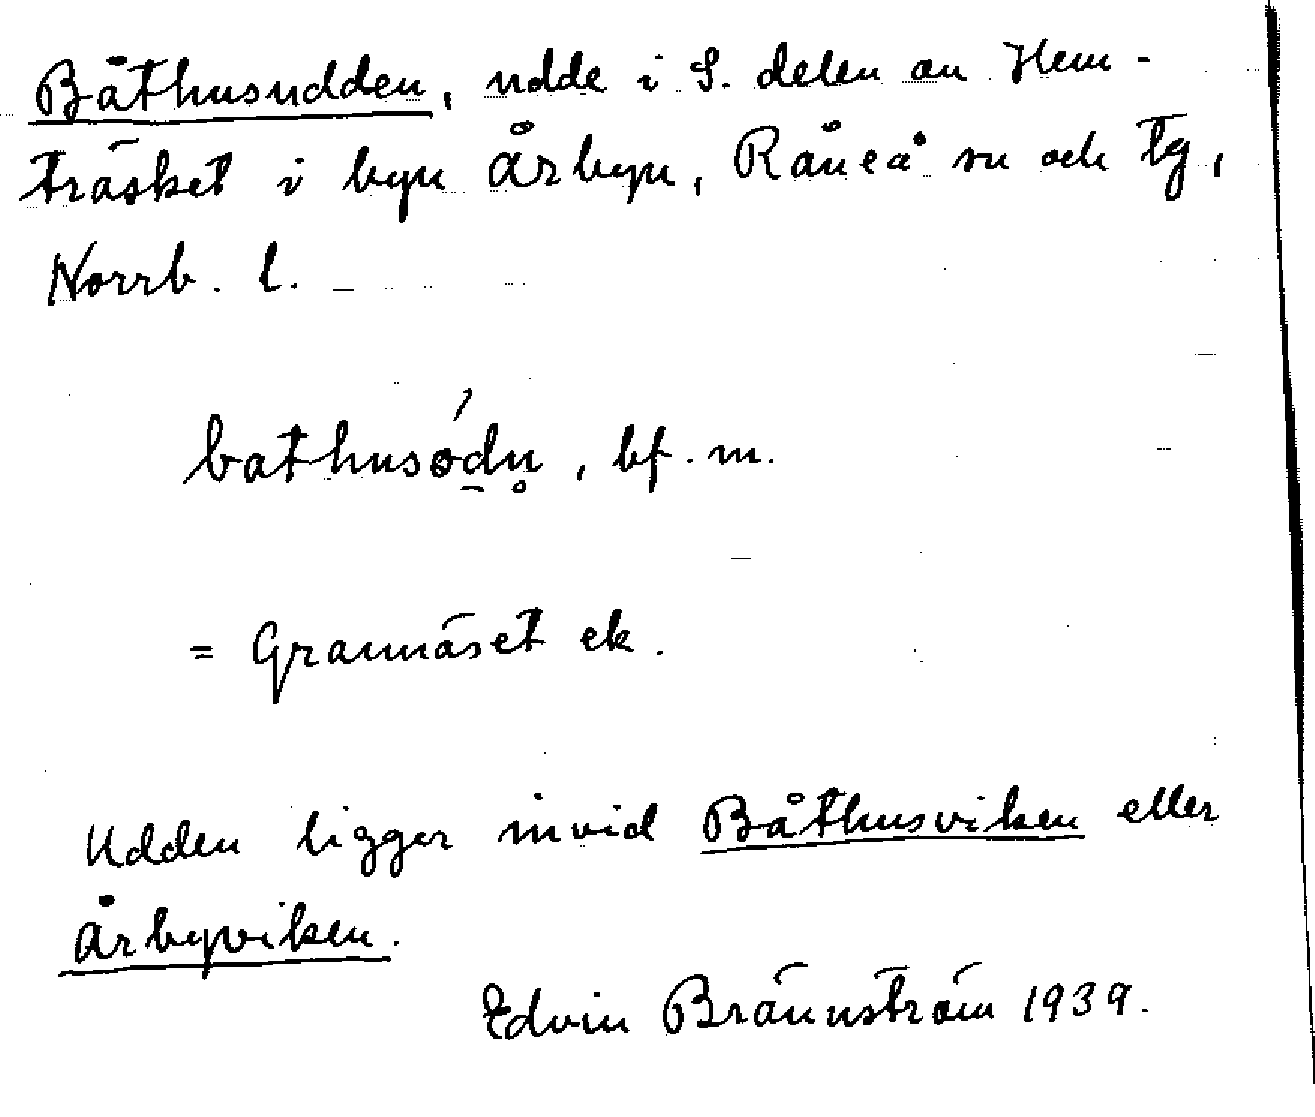 Båthusudden, udde i S. delen av Hem-
träsket i byn Årbyn, Råneå sn och tg,
Norrb. l.
bathusódn̥, bf. m.
= Grannäset ek.
Udden ligger invid Båthusviken eller
Årbyviken.
Edvin Brännström 1939.